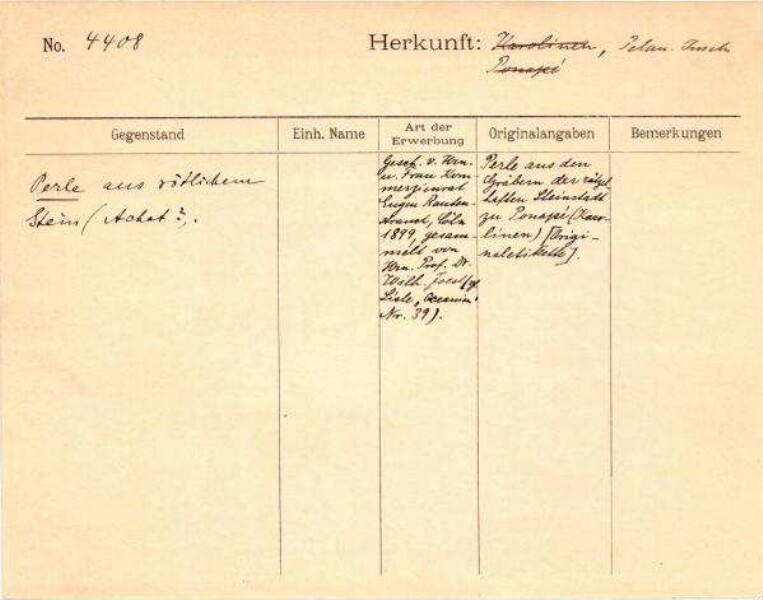 No. 4408
Herkunft: Karolinen, Pelau-Inseln
Ponapé
Gegenstand
Einh. Name
Art der Erwerbung
Originalangaben
Bemerkungen
Perle aus rötlichem
Stein (Achat?).
Gesch. v. Hrn.
u. Frau Kom-
merzienrat
Eugen Rauten-
strauch, Cöln
1899, gesam-
melt von
Hrn. Prof. Dr.
Wilh. Joest (cf.
Liste „Oceanien"
Nr. 39).
Perle aus den
Gräbern der rätsel
haften Steinstadt
zu Ponapé (Karo-
linen) [Origi-
naletikette].